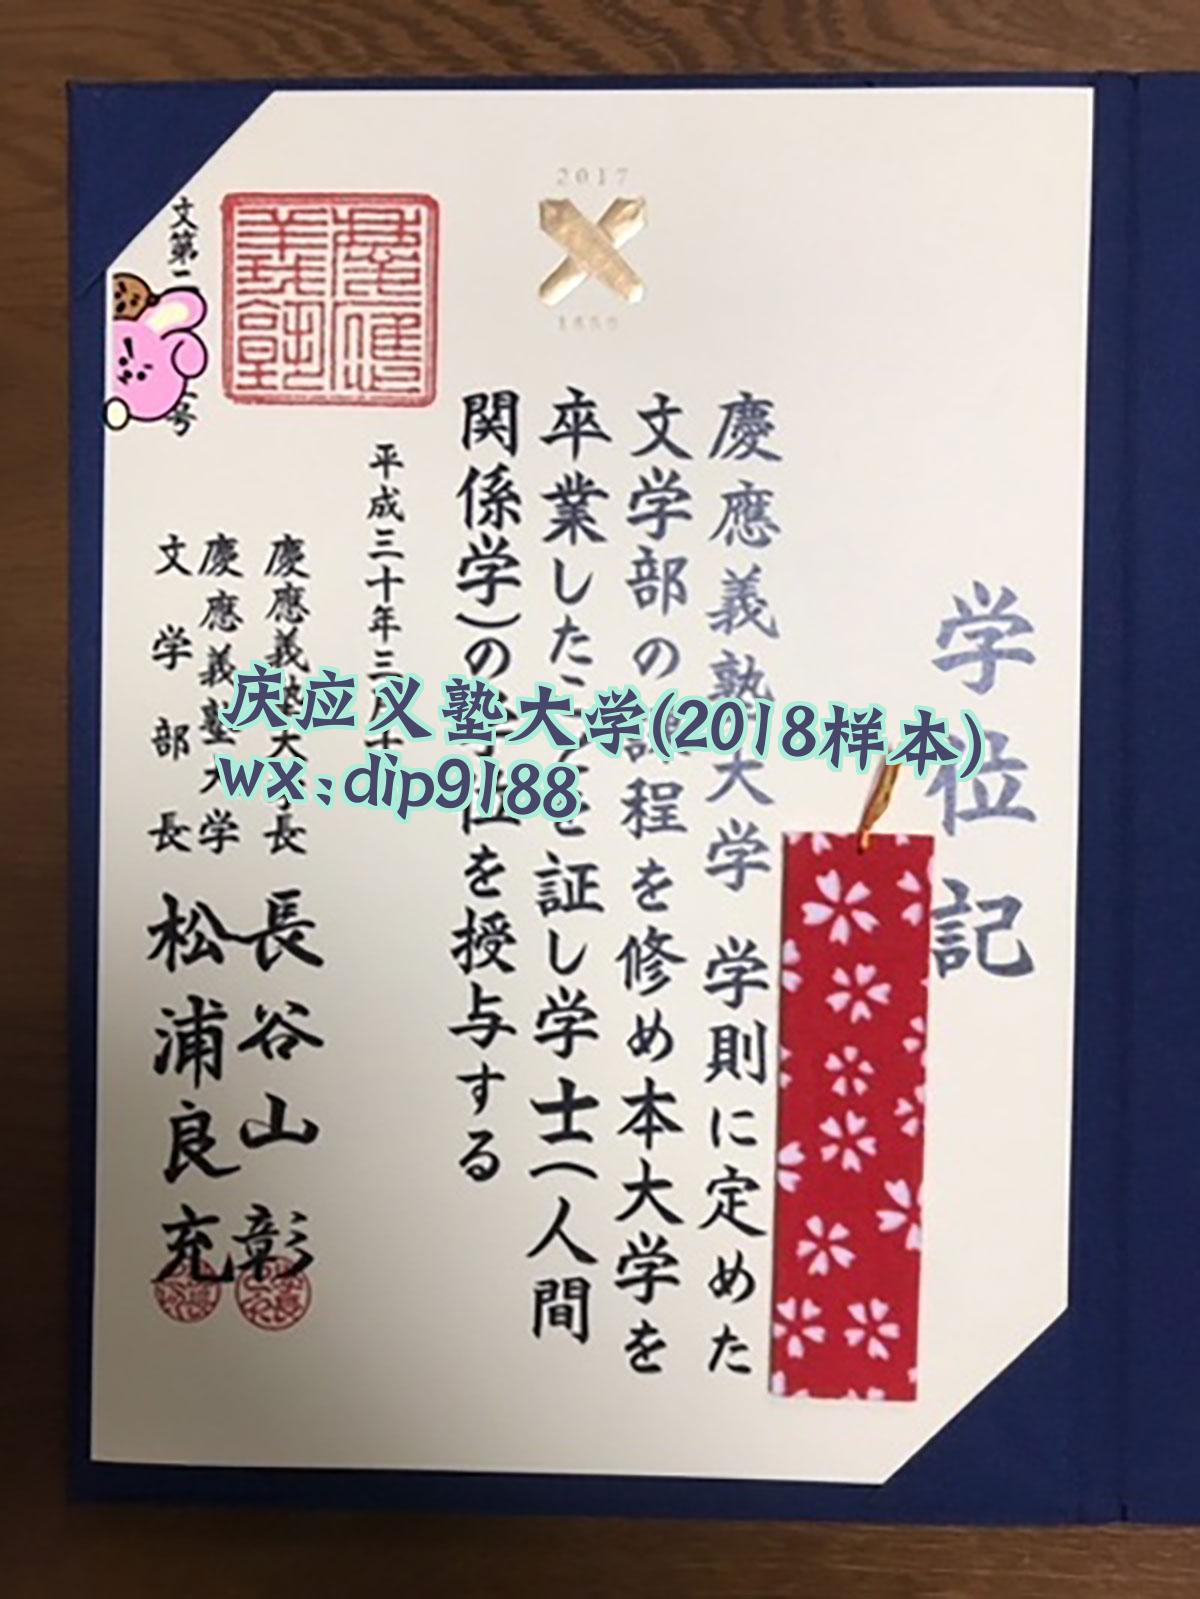 学位記
慶應義塾大学 学則に定めた
文学部の課程を修め本大学を
卒業したことを証し学士(人間
関係学)の学位を授与する
平成三十年三月
慶應義塾大学長 長谷山 彰
慶應義塾大学
文学部長 松浦良充
文第二
号
慶應義塾
2017
庆应义塾大学(2018样本)
wx:dip9188